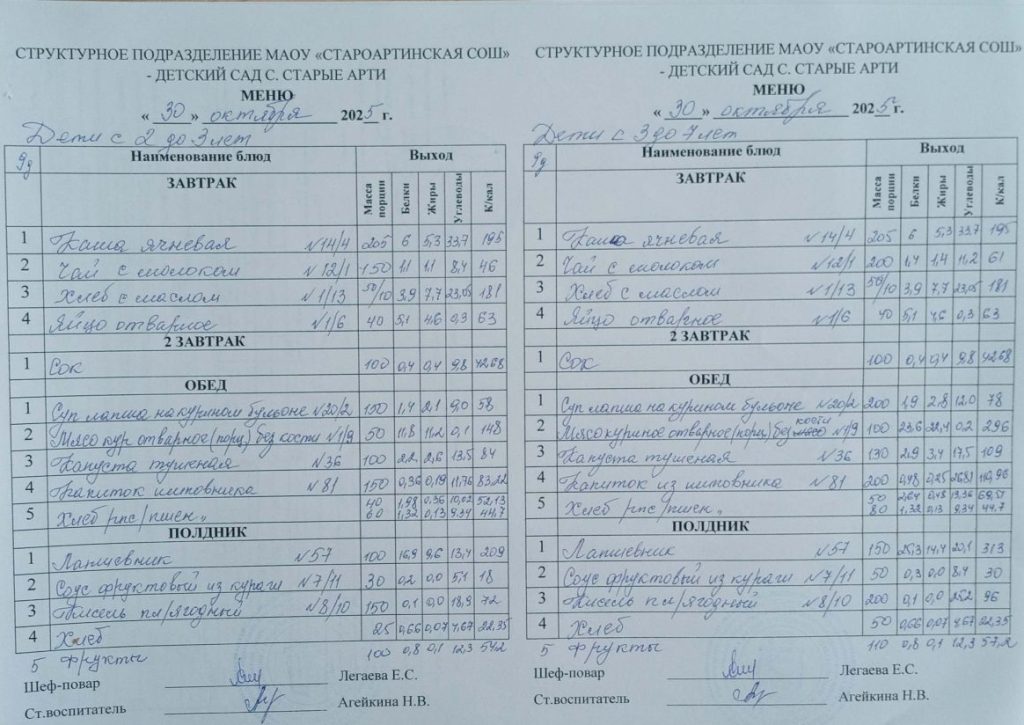 СТРУКТУРНОЕ ПОДРАЗДЕЛЕНИЕ МАОУ «СТАРОАРТИНСКАЯ СОШ»
- ДЕТСКИЙ САД С. СТАРЫЕ АРТИ
МЕНЮ
« 30 » октября 2025 г.
Дети с 2 до 3 лет
9д Наименование блюд Выход
ЗАВТРАК Масса порции Белки Жиры Углеводы К/кал
1 Каша ячневая №14/4 205 6 5,3 33,7 195
2 Чай с молоком №12/1 150 1,1 1,1 8,4 46
3 Хлеб с маслом №1/13 50/10 3,9 7,7 23,05 181
4 Яйцо отварное №1/6 40 5,1 4,6 0,3 63
2 ЗАВТРАК
1 Сок 100 0,4 0,4 9,8 42,68
ОБЕД
1 Суп лапша на курином бульоне №20/2 150 1,4 2,1 9,0 58
2 Мясо кур отварное (порц) без кости №1/9 50 11,8 11,2 0,1 148
3 Капуста тушеная №36 100 2,2 2,6 13,5 84
4 Напиток шиповника №81 150 0,36 0,19 11,76 83,22
5 Хлеб рпс/пшен. 40 1,98 0,36 10,02 52,13
60 1,32 0,13 9,34 44,7
ПОЛДНИК
1 Лапшевник №57 100 16,9 9,6 13,4 209
2 Соус фруктовый из кураги №7/11 30 0,2 0,0 5,1 18
3 Кисель пл/ягодный №8/10 150 0,1 0,0 18,9 72
4 Хлеб 25 0,66 0,07 4,67 22,35
5 Фрукты 100 0,8 0,1 12,3 54,2
Шеф-повар Легаева Е.С.
Ст.воспитатель Агейкина Н.В.
СТРУКТУРНОЕ ПОДРАЗДЕЛЕНИЕ МАОУ «СТАРОАРТИНСКАЯ СОШ»
- ДЕТСКИЙ САД С. СТАРЫЕ АРТИ
МЕНЮ
« 30 » октября 2025 г.
Дети с 3 до 7 лет
9д Наименование блюд Выход
ЗАВТРАК Масса порции Белки Жиры Углеводы К/кал
1 Каша ячневая №14/4 205 6 5,3 33,7 195
2 Чай с молоком №12/1 200 1,4 1,4 11,2 61
3 Хлеб с маслом №1/13 50/10 3,9 7,7 23,05 181
4 Яйцо отварное №1/6 40 5,1 4,6 0,3 63
2 ЗАВТРАК
1 Сок 100 0,4 0,4 9,8 42,68
ОБЕД
1 Суп лапша на курином бульоне №20/2 200 1,9 2,8 12,0 78
2 Мясо куриное отварное (порц) без кости №1/9 100 23,6 22,4 0,2 296
3 Капуста тушеная №36 130 2,9 3,4 17,5 109
4 Напиток из шиповника №81 200 0,48 0,25 110,96
5 Хлеб рпс/пшен. 50 2,64 0,48 13,36 69,51
80 1,32 0,13 9,34 44,7
ПОЛДНИК
1 Лапшевник №57 150 25,3 14,4 20,1 313
2 Соус фруктовый из кураги №7/11 50 0,3 0,0 8,4 30
3 Кисель пл/ягодный №8/10 200 0,1 0,0 25,2 96
4 Хлеб 50 0,66 0,07 4,67 22,35
5 фрукты 110 0,8 0,1 12,3 57,2
Шеф-повар Легаева Е.С.
Ст.воспитатель Агейкина Н.В.